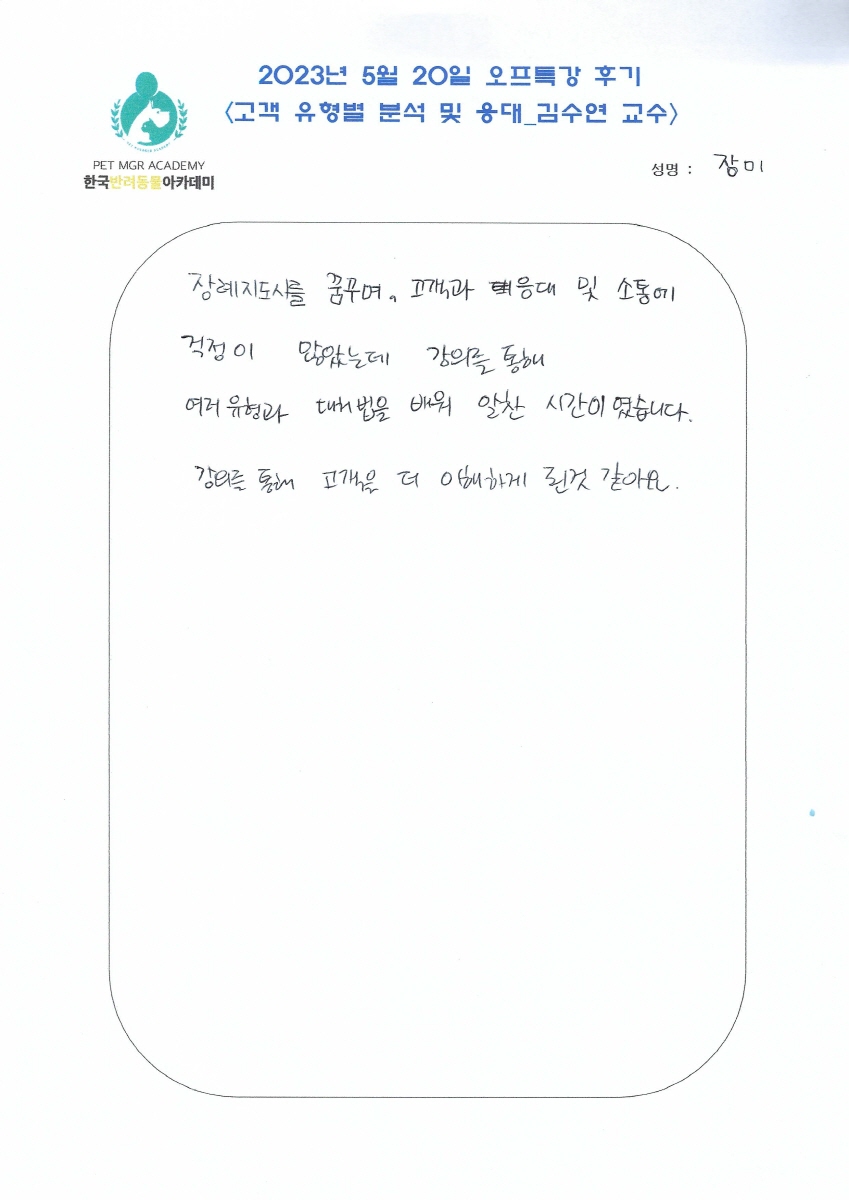 2023년 5월 20일 오프특강 후기
<고객 유형별 분석 및 응대_김수연 교수>
PET MGR ACADEMY
한국반려동물아카데미
성명 : 장미
장례지도사를 꿈꾸며, 고객과 응대 및 소통에
걱정이 많았는데 강의를 통해
여러 유형과 대처법을 배워 알찬 시간이였습니다.
강의를 통해 고객을 더 이해하게 된것 같아요.